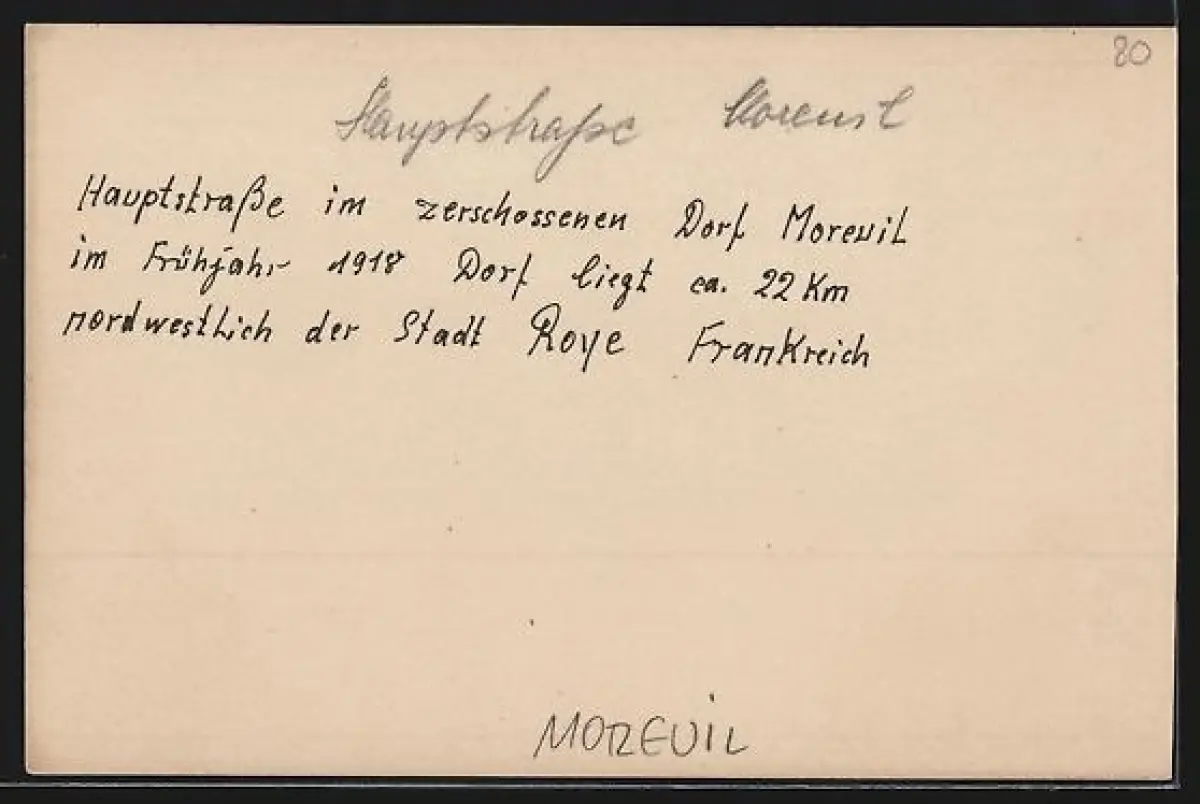 80
Hauptstraße Moreuil
Hauptstraße im zerschossenen Dorf Moreuil
im Frühjahr 1918 Dorf liegt ca. 22 Km
nordwestlich der Stadt Roye Frankreich
MOREUIL